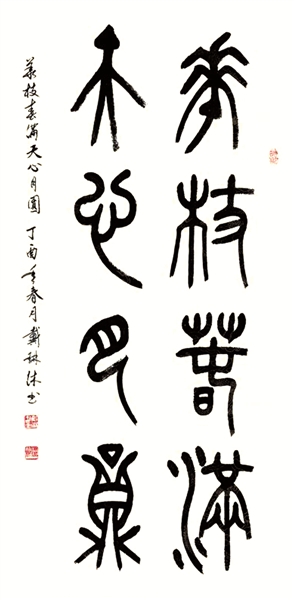 華枝春滿
天心月員
華枝春滿天心月圓 丁酉年春月戴